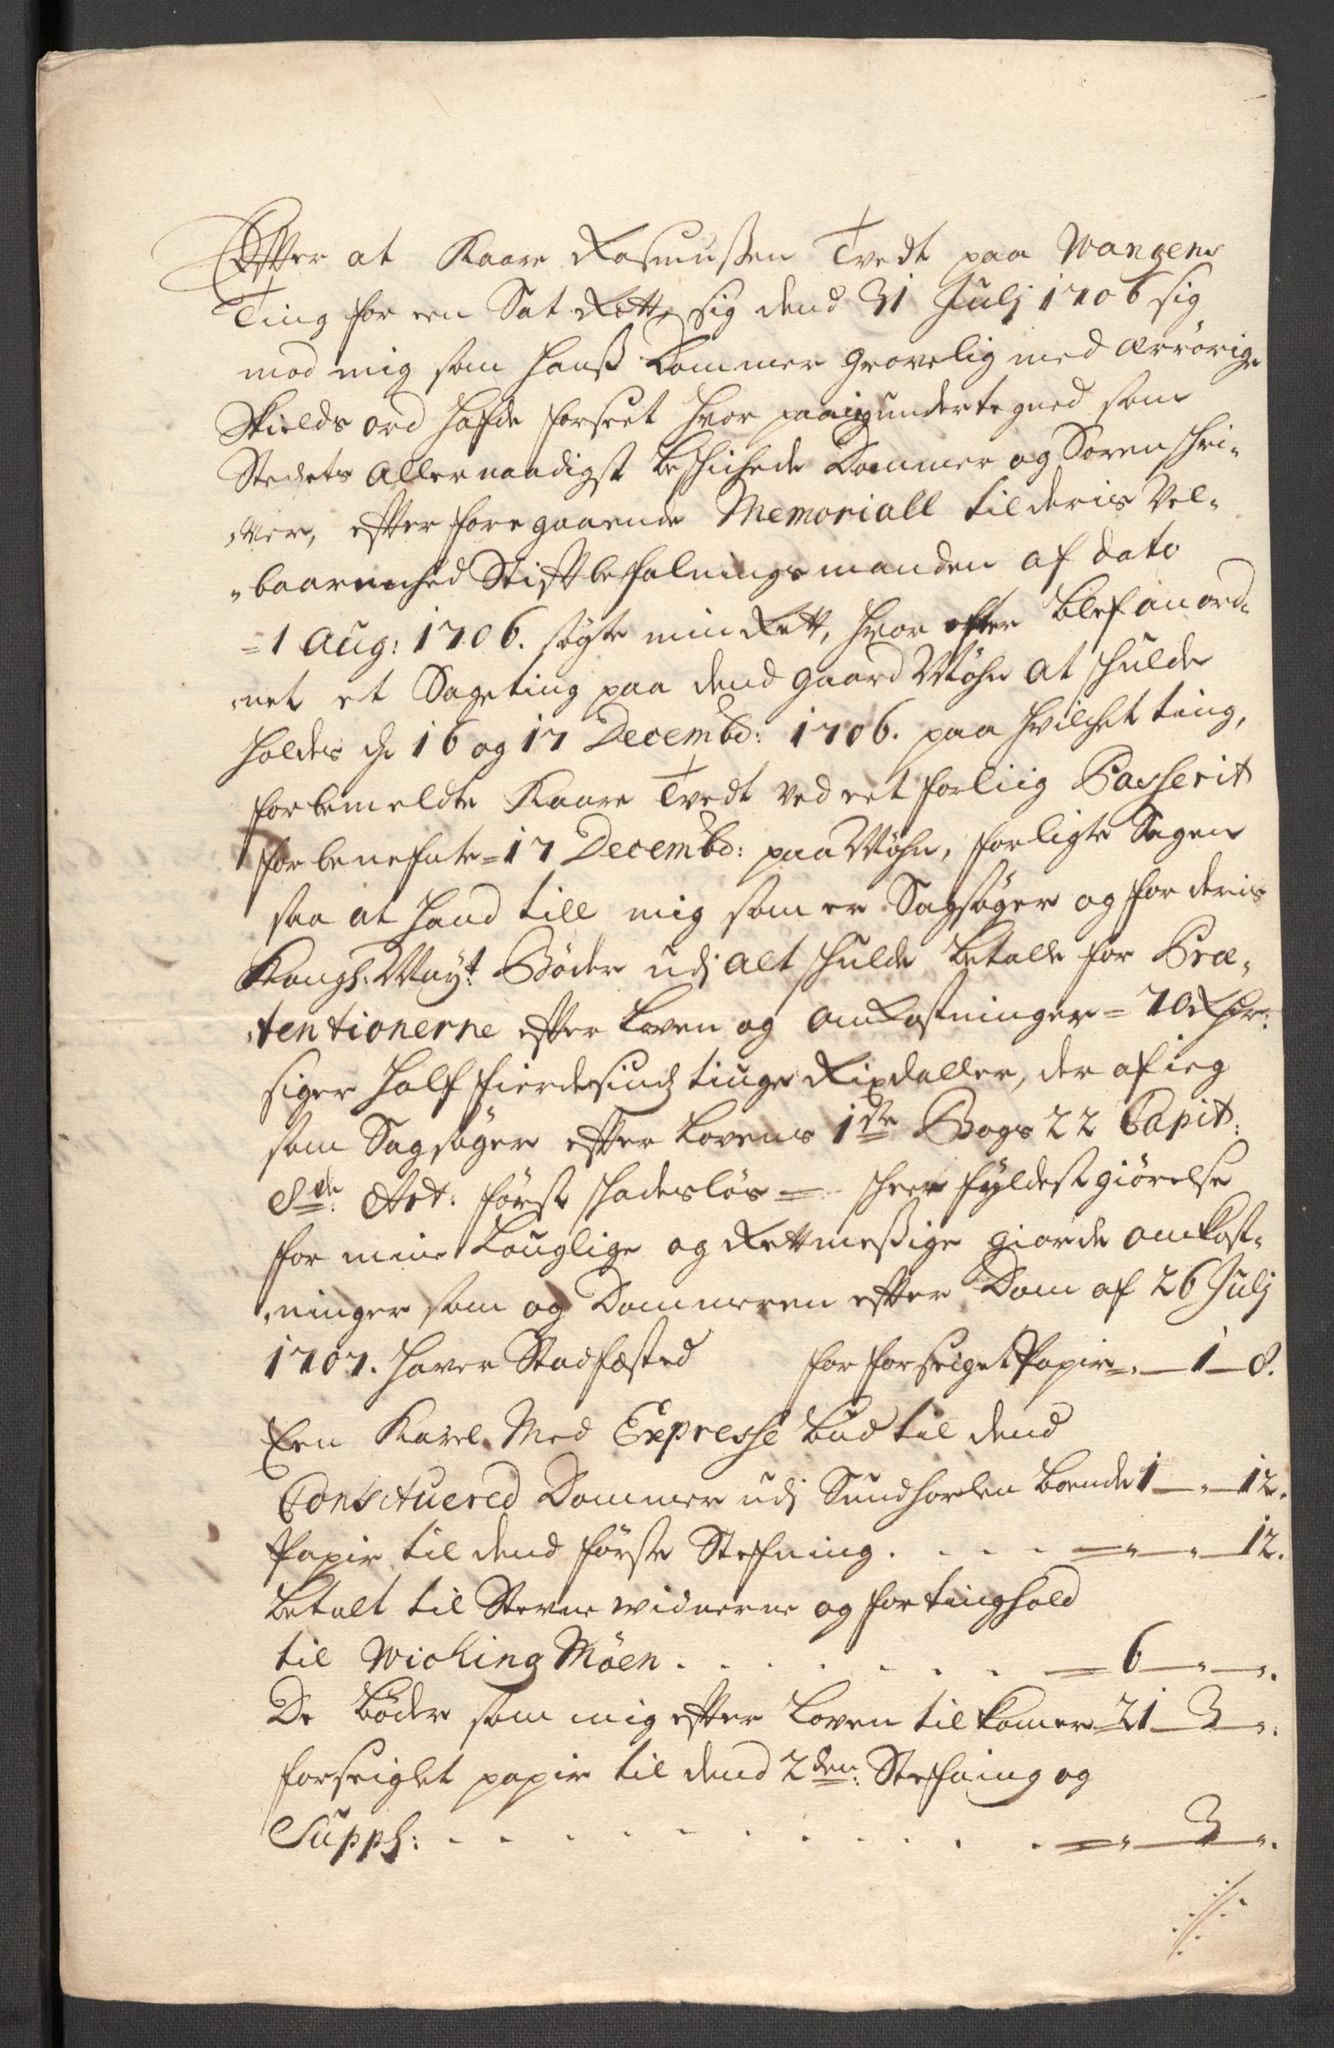 Efter at Kaare Rasmussen Tvedt paa Wangens
Ting for een Sat Rett, sig dend 31 Julj 1706 sig
mod mig som hanß Dommer Grovelig med ærrørige
Skields ord hafde forseet hvor paa ieg undertegned som
Stedets Allernaadigst beschichede Dommer og Sorenschri-
wer, efter foregaaende Memoriall til deris Vel-
baarenhed Stiftbefalningsmanden af dato
= 1 Aug: 1706. søgte min Rett, hvor efter blef anord-
net et Sageting paa dend gaard Møhn at schulde
holdes d 16 og 17 Decembr: 1706. paa hvilchet ting,
forbemeldte Kaare Tvedt ved eet forliig Passerit
forbenefnte = 17 Decembr: paa Møhn, forligte Sagen
saa at hand till mig som er Sagsøger og for deris
Kongl: May:t Bøder udj alt schulde betalle for Præ-
tentionerne efter loven og omkostninger = 70 Rdr:
siger half fierdesindstiuge Rixdaller, der af ieg
som Sagsøger efter Lovens 1ste Bogs 22 Capit:
8de Art: først schadesløs = scheer fyldestgiørelse
for mine Louglige og Rettmeßige giorde omkost-
ninger som og Dommeren efter Dom af 26 Julj
1707. haver Stadfæsted for forseiglet Papir - 1 - 8.
Een Karl Med Expresse bud til dend
Constituered Dommer udj Sundhorlen boende 1 - " - 12.
Papir til dend første Stefning . . . . = " - " - 12.
betalt til Stevnewidnerne og for tinghold
til Wiching Møen . . . . . . . . = 6 - " - ".
De bøder som mig efter Loven tilkomer = 21 - 3 - ":
forseiglet papir til dend 2den: Stefning og
Suppl: . . . . . . . . . . . = " - 3 - ".
·/.